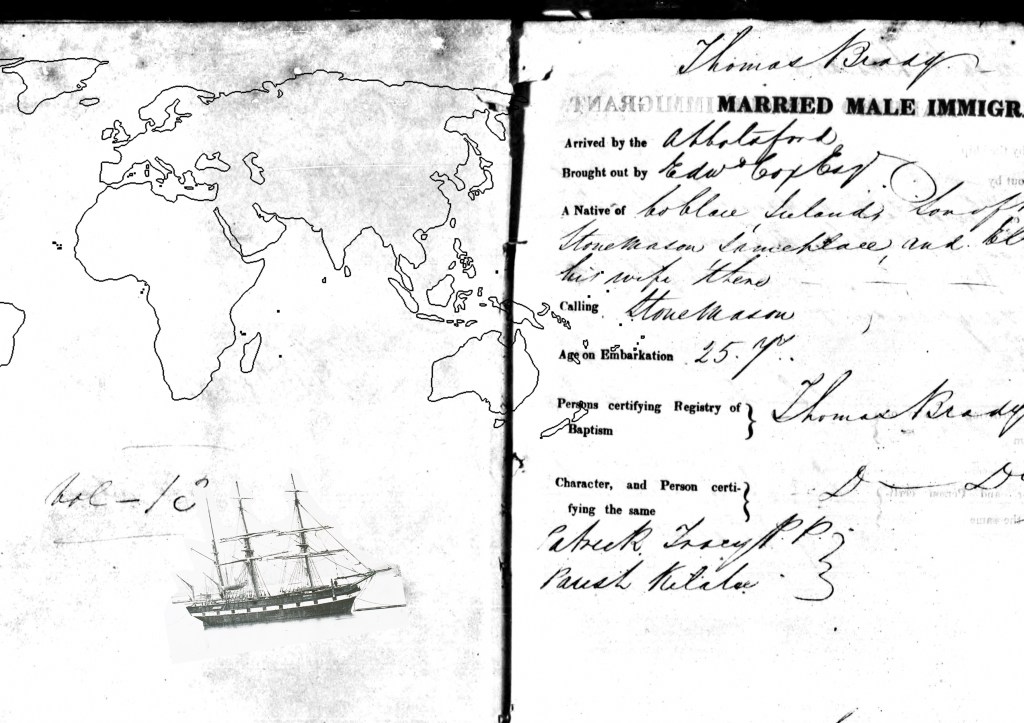 Vol - 13
Thomas Brady
MARRIED MALE IMMIGR
Arrived by the Abbotsford
Brought out by Edwd Cox Esqr
A Native of Ireland, Son of
Stone Mason Same place, and
his wife there
Calling Stone Mason
Age on Embarkation 25. Yrs.
Persons certifying Registry of Baptism } Thomas Brady
Character, and Person certi-fying the same } D — Do
Patrick Tracy P. P. }
Parish